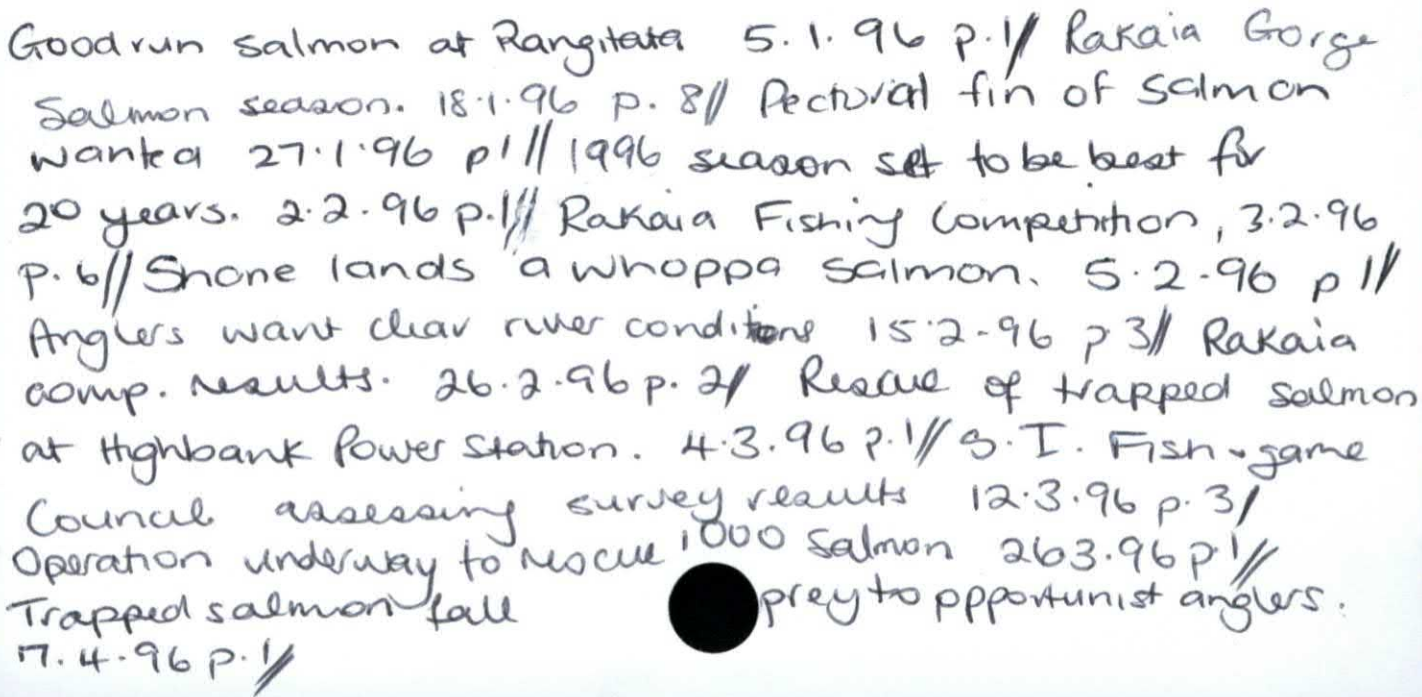 Good run salmon at Rangitata 5.1.96 p.1// Rakaia Gorge
Salmon season. 18.1.96 p. 8// Pectorial fin of salmon
wanted 27.1.96 p1// 1996 season set to be best for
20 years. 2.2.96 p.1// Rakaia Fishing Competition, 3.2.96
p. 6// Shone lands a whoppa salmon. 5.2.96 p 1//
Anglers want clear river conditions 15.2.96 p 3// Rakaia
comp. results. 26.2.96 p. 2/ Rescue of trapped salmon
at Highbank Power Station. 4.3.96 p.1// S.I. Fish & game
Council assessing survey results 12.3.96 p. 3/
Operation underway to rescue 1000 Salmon 263.96 p.1//
Trapped salmon fall prey to ppportunist anglers.
17.4.96 p.1//